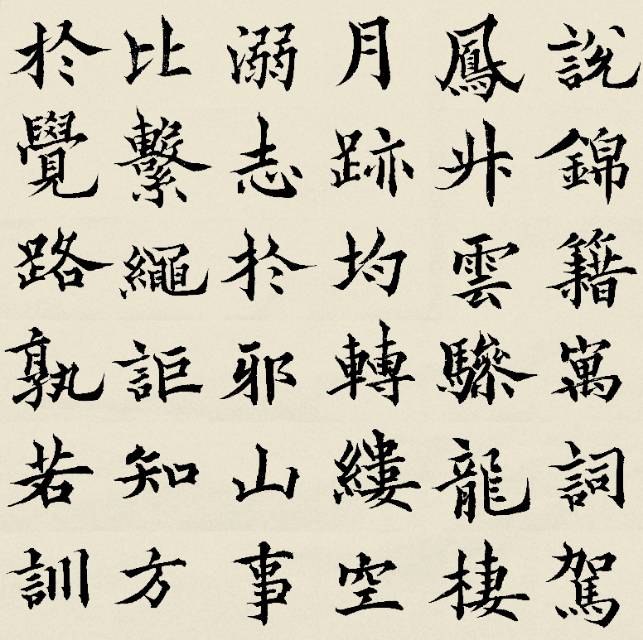 說錦籍寓詞駕
鳳升雲驂龍棲
月跡均轉縷空
溺志於邪山事
比繫繩詎知方
於覺路孰若訓